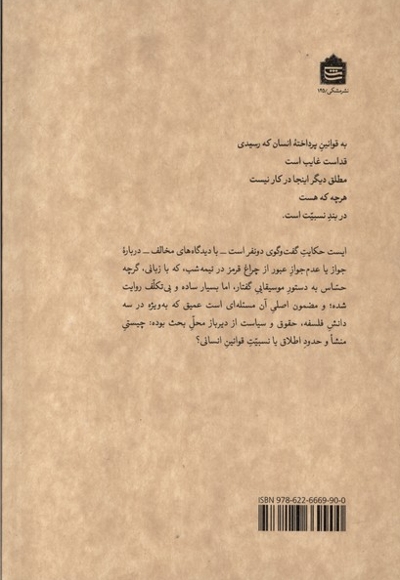 نشر مشکی/۱۹۵
به قوانینِ پرداختهٔ انسان که رسیدی
قداست غایب است
مطلق دیگر اینجا در کار نیست
هرچه که هست
در بندِ نسبیّت است.
ایست حکایتِ گفت‌وگوی دونفر است ـــ با دیدگاه‌های مخالف ـــ دربارهٔ
جواز یا عدم‌جوازِ عبور از چراغِ قرمز در نیمه‌شب، که با زبانی، گرچه
حسّاس به دستورِ موسیقاییِ گفتار، اما بسیار ساده و بی‌تکلّف روایت
شده؛ و مضمونِ اصلیِ آن مسئله‌ای است عمیق که به‌ویژه در سه
دانشِ فلسفه، حقوق و سیاست از دیرباز محلِّ بحث بوده: چیستیِ
منشأ و حدودِ اطلاق یا نسبیّتِ قوانینِ انسانی؟
ISBN 978-622-6669-90-0